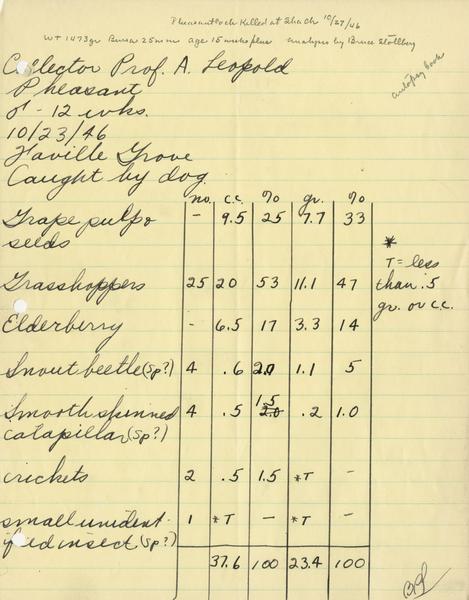 Pheasant cock killed at Shack 10/27/46
Wt 1473gr Bursa 25mm age 15 weeks plus analyses by Bruce Stollberg
autopsy book
Collector Prof. A. Leopold
Pheasant
♂ - 12 wks.
10/23/46
Faville Grove
Caught by dog.
no. c.c. % gr. %
Grape pulp & seeds - 9.5 25 7.7 33
Grasshoppers 25 20 53 11.1 47
Elderberry - 6.5 17 3.3 14
Snout beetle (sp?) 4 .6 2.0 1.1 5
Smooth skinned catapillar (sp?) 4 .5 2.0 1.5 .2 1.0
crickets 2 .5 1.5 *T -
small unident-
ified insect (sp?) 1 *T - *T -
37.6 100 23.4 100
*
T = less
than .5
gr. or cc.
BS